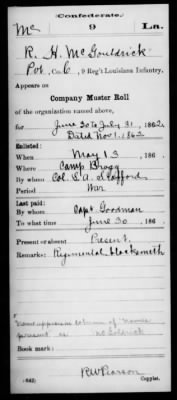 Confederate.
Mc 9 La.
R. H. McGouldrick
Pvt, Co. C, 9 Reg't Louisiana Infantry.
Appears on
Company Muster Roll
of the organization named above,
for June 30 to July 31, 1862.
Dated Nov. 1, 1862
Enlisted:
When May 13, 186 .
Where Camp Bragg
By whom Col. L. A. Stafford
Period War
Last paid:
By whom Capt Goodman
To what time June 30, 186 .
Present or absent Present.
Remarks: Regimental blacksmith
Name appears in column of names
present as McGoldrick
Book mark:
(642)
R W Pearson
Copyist.